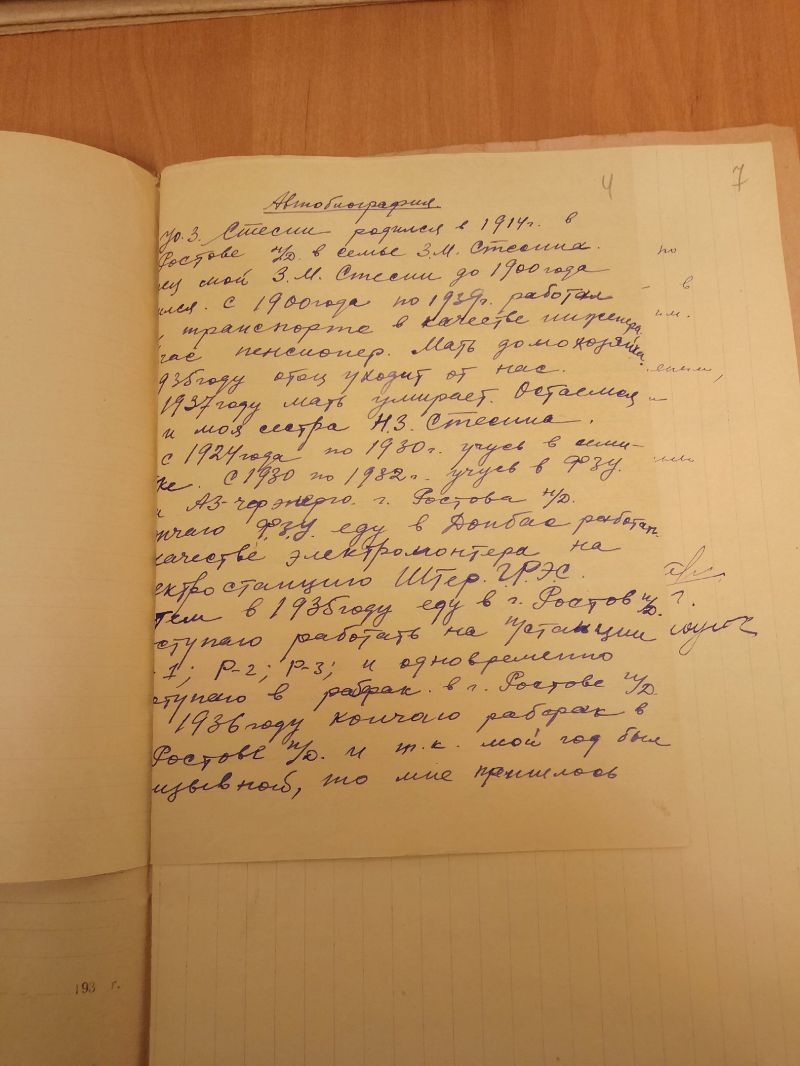 4
7
Автобиография
Ю.З. Стесин родился в 1914г. в
Ростове н/Д. в семье З.М. Стесина.
ец мой З.М. Стесин до 1900 года
лся. С 1900 года по 1939г. работал
транспорте в качестве инженера.
час пенсионер. Мать домохозяйка.
935 году отец уходит от нас.
1937 году мать умирает. Остаемся
и моя сестра Н.З. Стесина.
с 1924 года по 1930г. учусь в семи-
ке. С 1930 по 1932г. учусь в ФЗУ.
Аз-черэнерго. г. Ростова н/Д.
нчаю ФЗУ. еду в Донбас работат.
качестве электромонтера на
ектростанцию Штер.ГРЭС.
тем в 1935 году еду в г. Ростов н/Д.
ступаю работать на п/станции
-1; Р-2; Р-3; и одновременно
ступаю в рабфак. в г. Ростове н/Д.
1936 году кончаю рабфак в
Ростове н/Д. и т.к. мой год был
изывной, то мне пришлось
по
в
им.
г.
193 г.